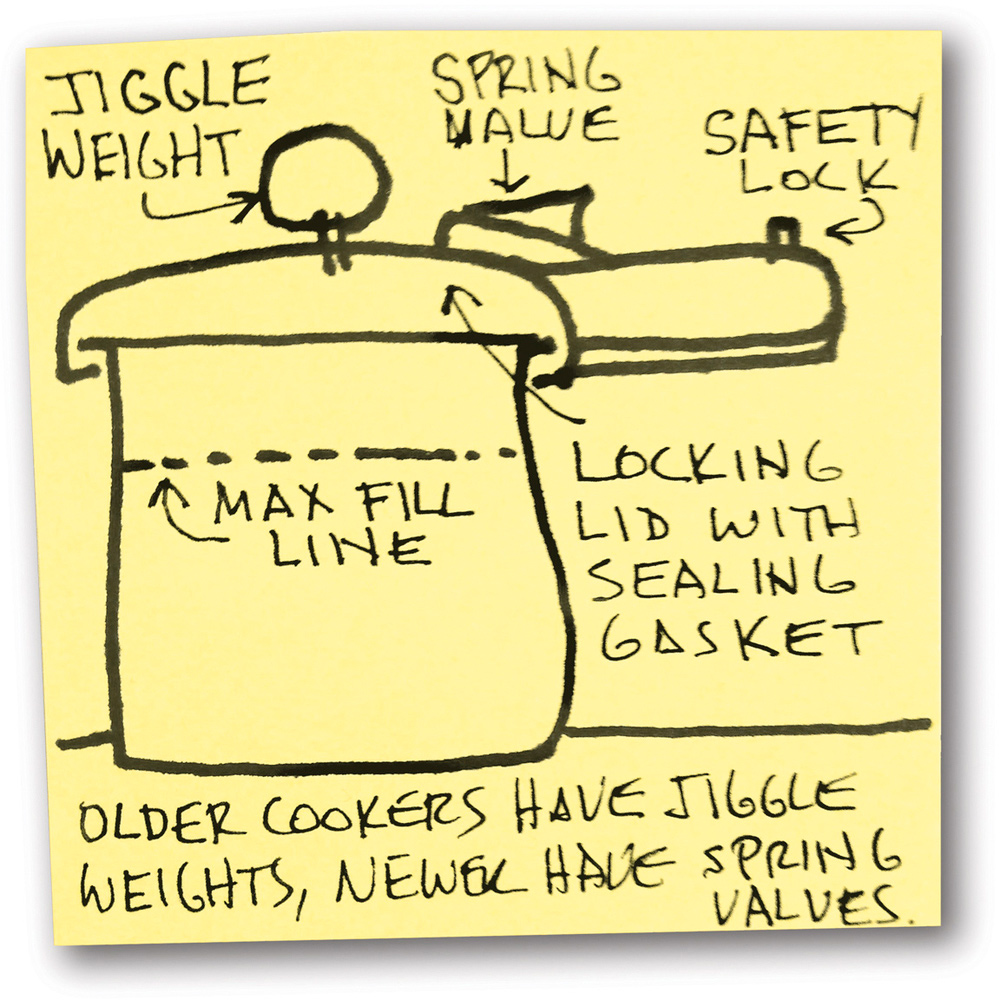 JIGGLE
WEIGHT
SPRING
VALVE
SAFETY
LOCK
MAX FILL
LINE
LOCKING
LID WITH
SEALING
GASKET
OLDER COOKERS HAVE JIGGLE
WEIGHTS, NEWER HAVE SPRING
VALVES.